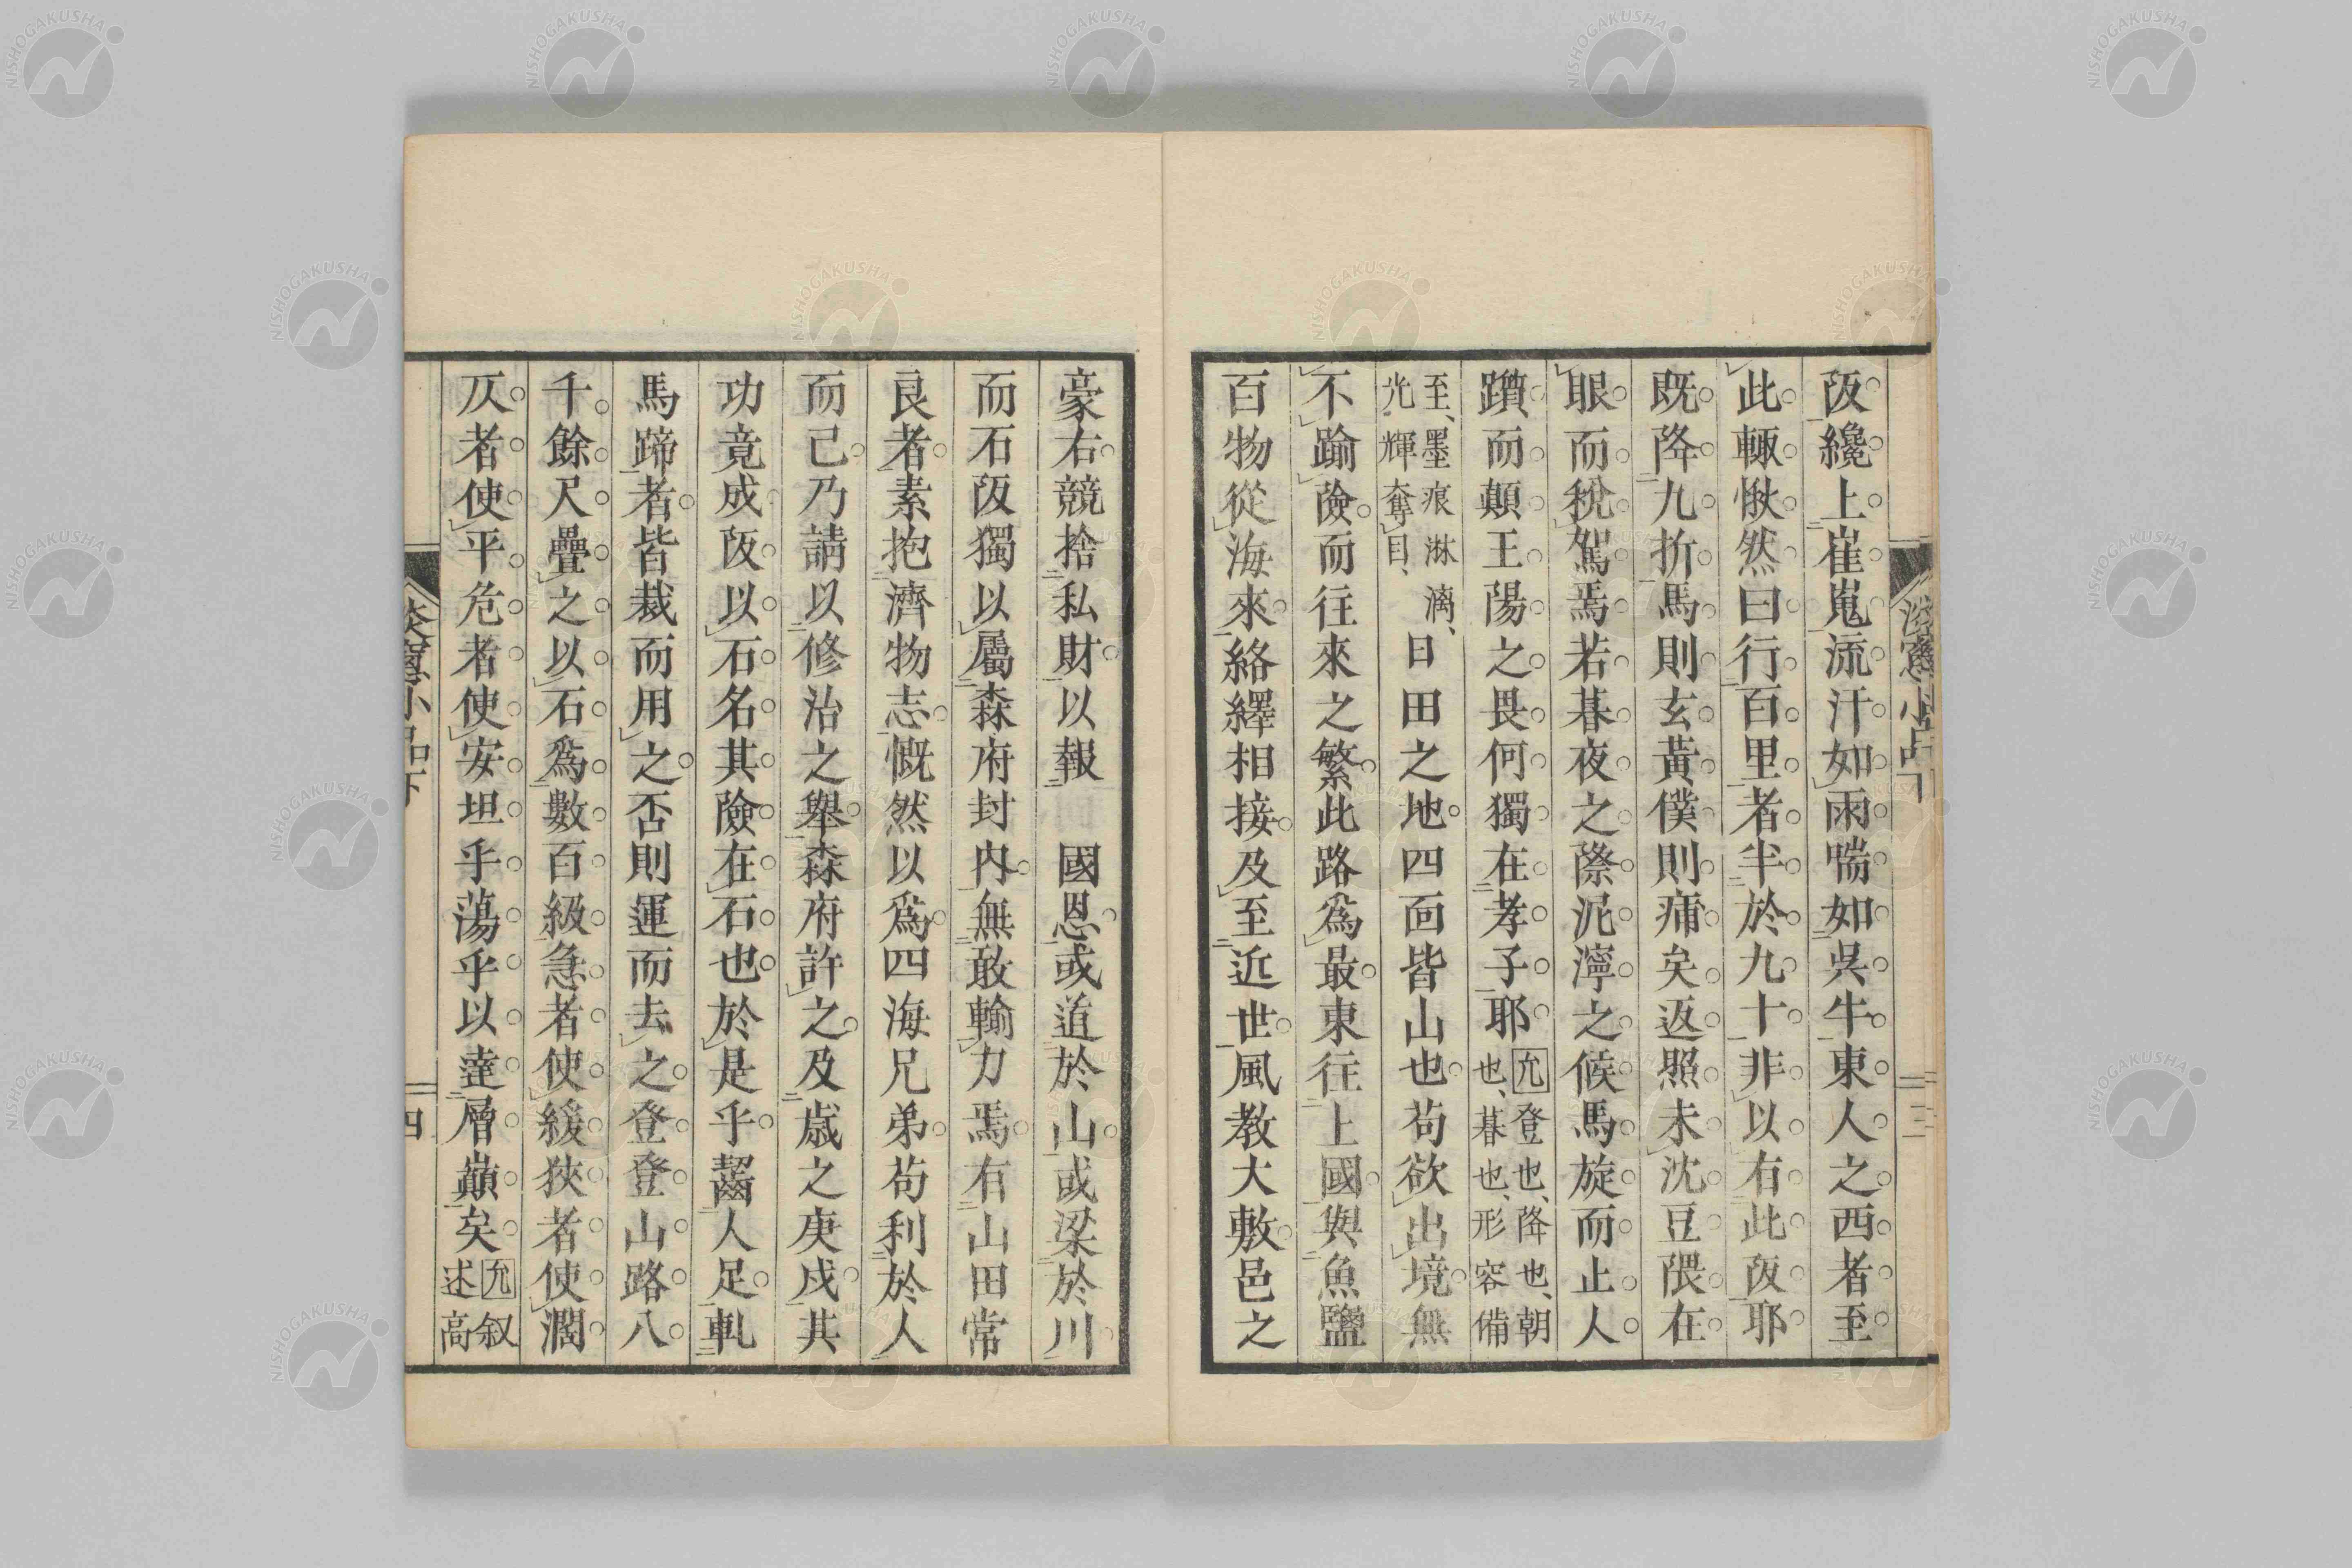 阪纔上崔嵬流汗如雨喘如吳牛東人之西者至
此輙愀然曰行百里者半於九十非以有此阪耶
既降九折馬則玄黃僕則痡矣返照未沈豆隈在
眼而稅駕焉若暮夜之際泥濘之候馬旋而止人
躓而顛王陽之畏何獨在孝子耶
允登也、降也、朝
也、暮也、形容備
至、墨痕淋漓、
光輝奪目、
日田之地四面皆山也苟欲出境無
不踰險而往來之繁此路為最東往上國與魚鹽
百物從海來絡繹相接及至近世風教大敷邑之
豪右競捨私財以報 國恩或道於山或梁於川
而石阪獨以屬森府封内無敢輸力焉有山田常
良者素抱濟物志慨然以爲四海兄弟苟利於人
而已乃請以修治之舉森府許之及歲之庚戌其
功竟成阪以石名其險在石也於是乎齧人足軋
馬蹄者皆裁而用之否則運而去之登登山路八
千餘尺疊之以石爲數百級急者使緩狹者使濶
仄者使平危者使安坦乎蕩乎以達層巔矣
允叙
述高
淡窻小品下
四
NISHOGAKUSHA